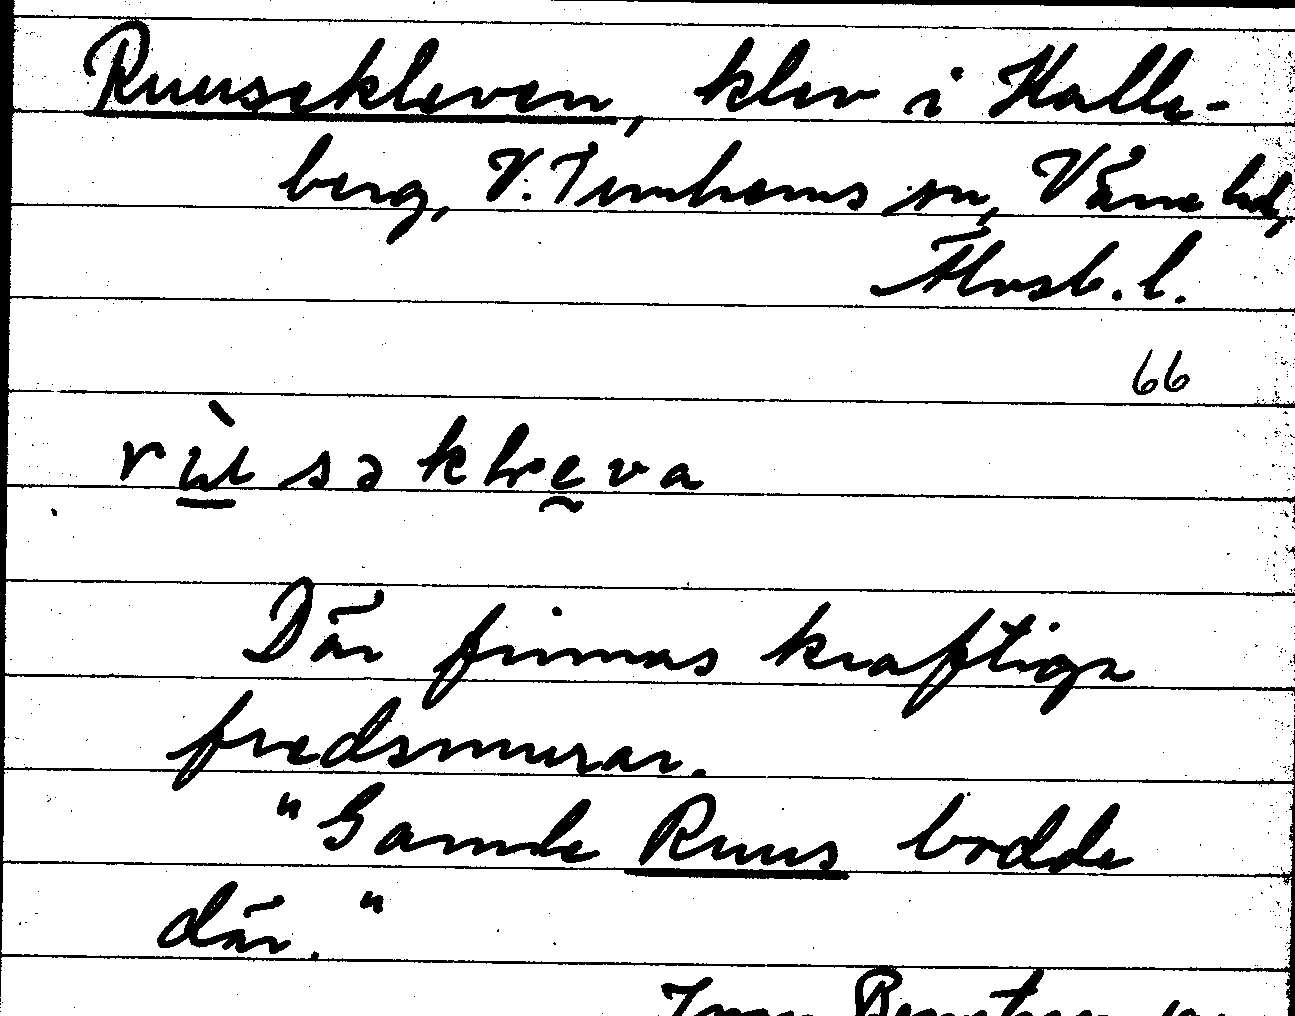 Ruusekleven, klev i Halle-
berg, V. Tunhems sn, Väne hd,
Älvsb. l.
66
rùusəkleva
Där finnas kraftiga
fredsmurar.
"Gamle Ruus bodde
där."